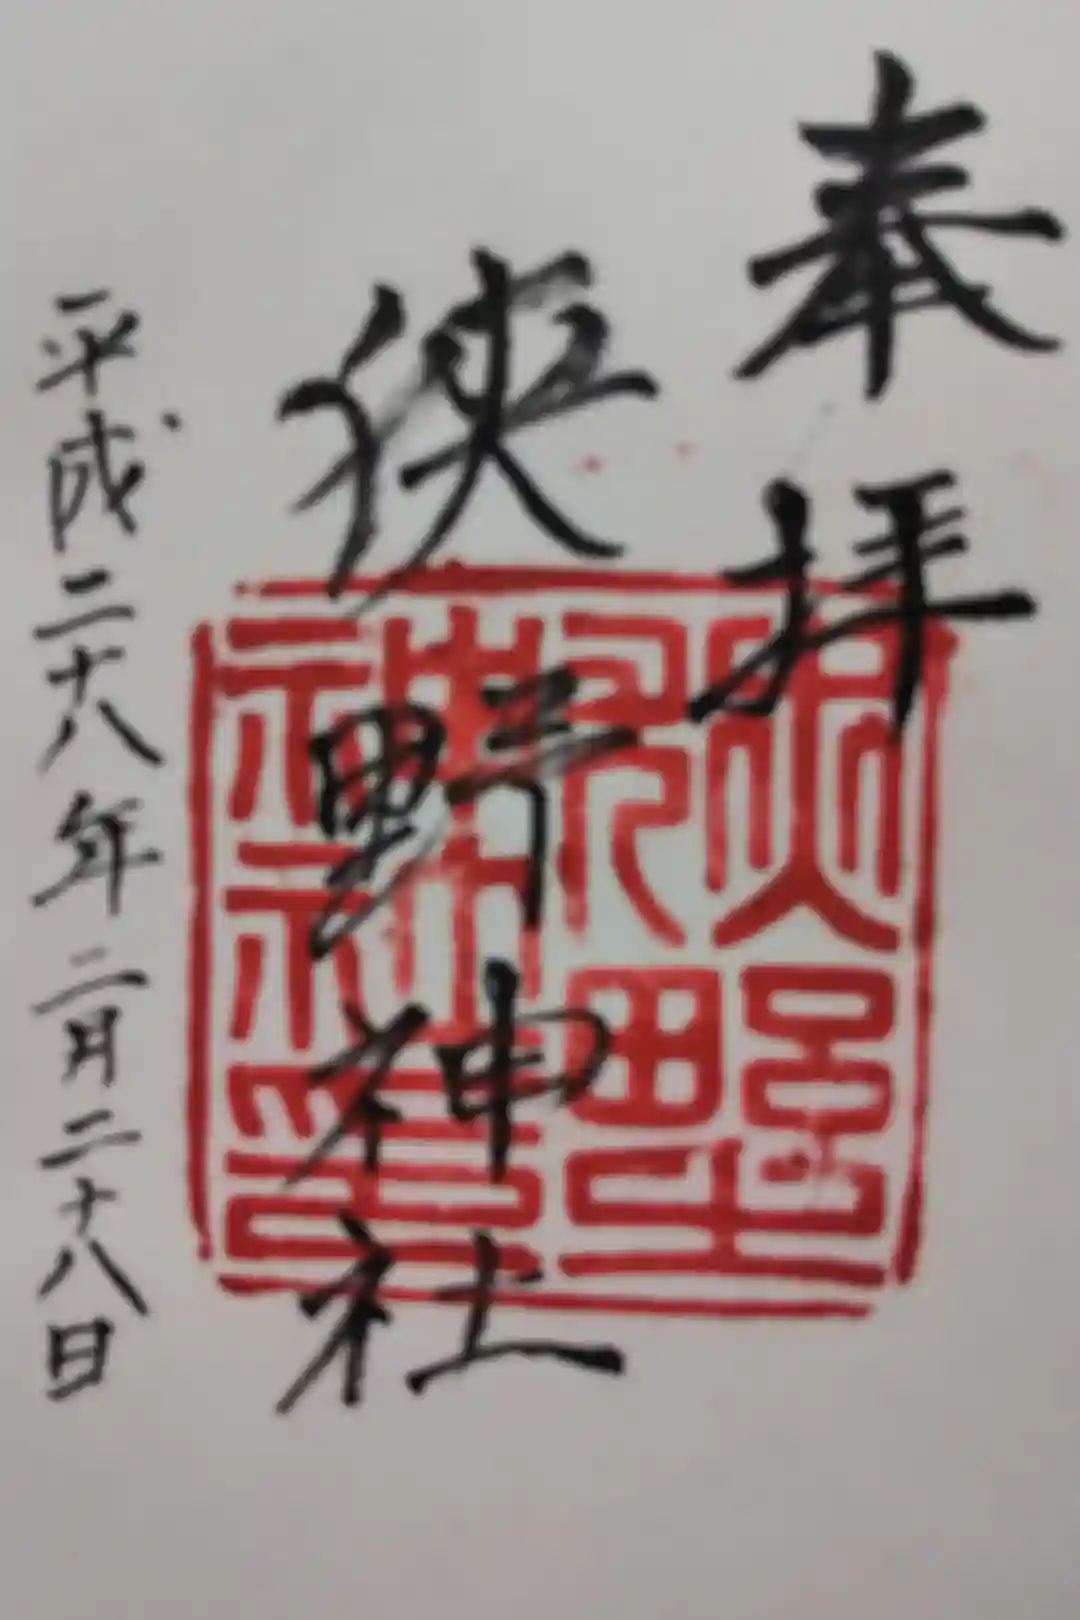 奉拝
狭野神社
平成二十八年二月二十八日